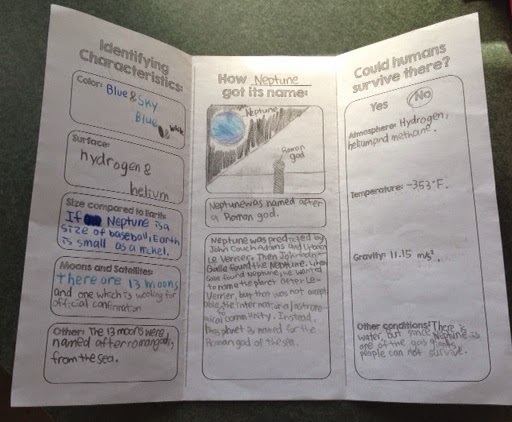 Identifying
Characteristics:
Color: Blue & Sky
Blue
Surface:
hydrogen &
helium
Size compared to Earth:
If Neptune is a
size of baseball, Earth
is small as a nickel.
Moons and Satellites:
there are 13 moons
and one which is waiting for
official confirmation
Other: The 13 moons were
named after roman gods
from the sea.
How Neptune
got its name:
Neptune
Roman
god
Neptune was named after
a Roman god.
Neptune was predicted by
John Couch Adams and
Le Verrier. Then
Galle found the Neptune. When
Galle found Neptune, he wanted
to name the planet after Le-
Verrier, but that was not
the international astronom-
ical community. Instead,
this planet is named for the
Roman god of the sea.
Could humans
survive there?
Yes No
Atmosphere: Hydrogen,
helium and methane.
Temperature: -353°F.
Gravity: 11.15 m/s².
Other conditions: There is
water, but since Neptune is
one of the gas giants,
people can not survive.